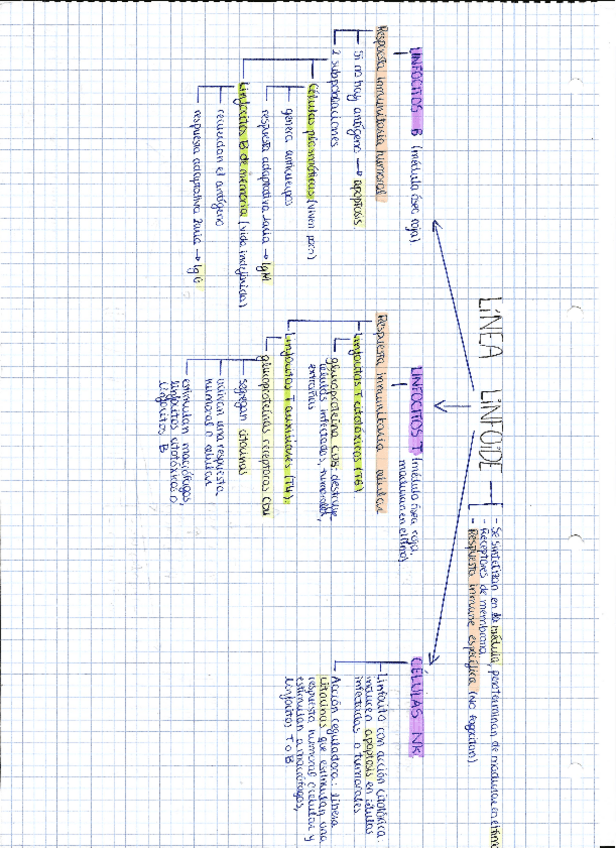 LÍNEA LINFOIDE
- Se sintetizan en la médula, pero terminan de madurar en el timo
- Receptores de membrana
- Respuesta inmune específica (No fagocitan)
LINFOCITOS B (médula ósea roja)
Respuesta inmunitaria humoral
Si no hay antígeno → apoptosis
2 subpoblaciones
Células plasmáticas (viven poco)
genera anticuerpos
respuesta adaptativa 1aria → IgM
Linfocitos B de memoria (vida indefinida)
recuerdan el antígeno
respuesta adaptativa 2aria → IgG
LINFOCITOS T (médula ósea roja,
maduran en el timo)
Respuesta inmunitaria celular
Linfocitos T citotóxicos (T8)
glucoproteína CD8: destruye
células infectadas, tumorales,
extrañas
Linfocitos T auxiliares (T4):
glucoproteínas receptoras CD4
segregan citocinas
activan una respuesta
humoral o celular
estimulan macrófagos,
linfocitos citotóxicos o
linfocitos B
CÉLULAS NK
Linfocito con acción citotóxica:
inducen apoptosis en células
infectadas o tumorales
Acción reguladora: libera
citocinas que estimulan una
respuesta humoral o celular y
estimulan a macrófagos,
linfocitos T o B.